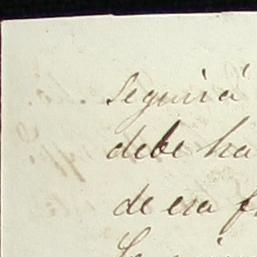 seguirá
debe ha
de era f